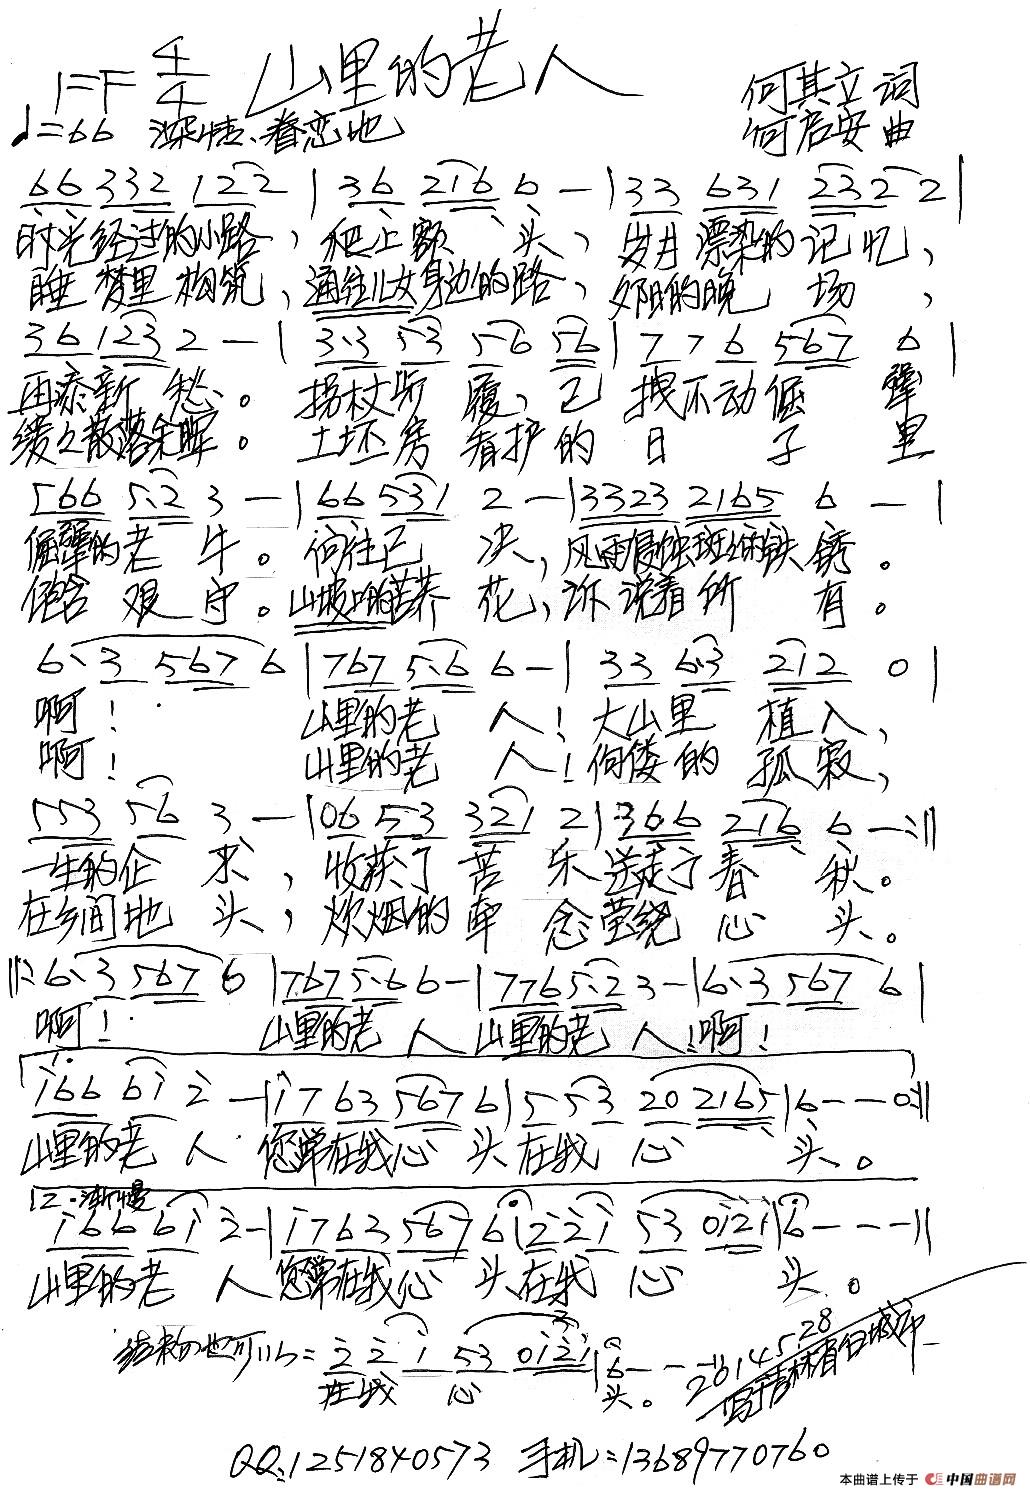 1=F 4/4 山里的老人
何其立 词
♩=66 深情、眷恋地
何启安 曲
66 332 122 | 36 216 6 — | 33 631 232 2 |
时光经过的小路，爬上额头，岁月漂染的记忆，
睡梦里构筑，通往儿女身边的路，夕阳的晚场，
36 123 2 — | 3·3 53 56 56 | 7 7 6 567 6 |
再添新愁。拐杖所履，已拽不动倔犟
缓缓散落余晖。土坯房看护的日子里
566 5·2 3 — | 66 531 2 — | 3323 2165 6 — |
倔犟的老牛。向往已决，风雨侵蚀斑斑铁锈。
饱含艰守。山坡的苦荞花，诉说着所有。
6· 3 567 6 | 767 5·6 6 — | 33 6·3 212 0 |
啊！山里的老人！大山里植入，
啊！山里的老人！佝偻的孤寂，
553 56 3 — | 06 53 321 2 | 366 216 6 — :||
一生的企求，收获了苦乐送走了春秋。
在乡间地头，炊烟的牵念萦绕心头。
||: 6· 3 567 6 | 767 5·6 6 — | 776 5·2 3 — | 6· 3 567 6 |
啊！山里的老人山里的老人！啊！
1.
i66 6i 2 — | i763 567 6 | 5 53 20 2165 | 6 — — 0 :||
山里的老人 您常在我心头在我心头。
2.渐慢
i66 6i 2 — | i763 567 6 | 22i 53 0i2i | 6 — — — ||
山里的老人您常在我心头在我心头。
结束句也可以：2 2 i 53 0i2i | 6 — — —
在我心头。
2014 5 28
写于吉林省白城市
QQ：1251840573 手机：13689770760
本曲谱上传于 中国曲谱网